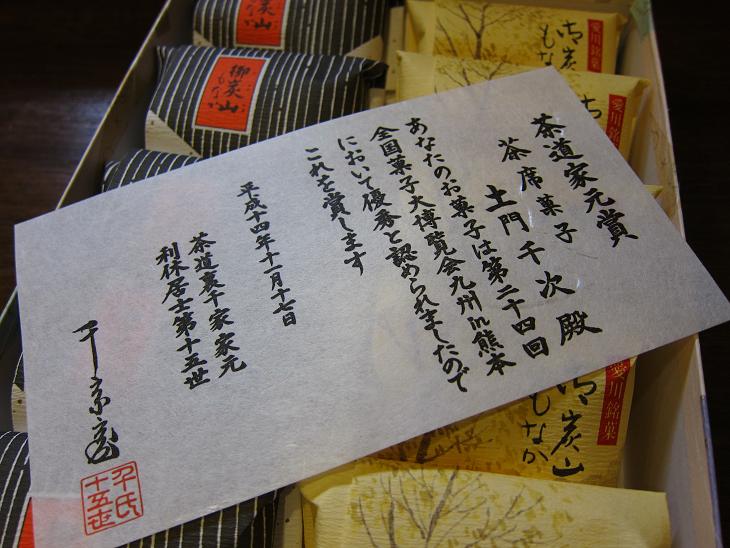 茶道家元賞
茶席菓子
土門千次殿
あなたのお菓子は第二十四回
全国菓子大博覧会九州in熊本
において優秀と認められましたので
これを賞します
平成十四年十一月十七日
茶道裏千家家元
利休居士第十五世
千宗室
千氏
十五世
御炭山
もなか
御炭山
もなか
愛川銘菓
御炭山
もなか
愛川銘菓
愛川銘菓
御炭山
もなか